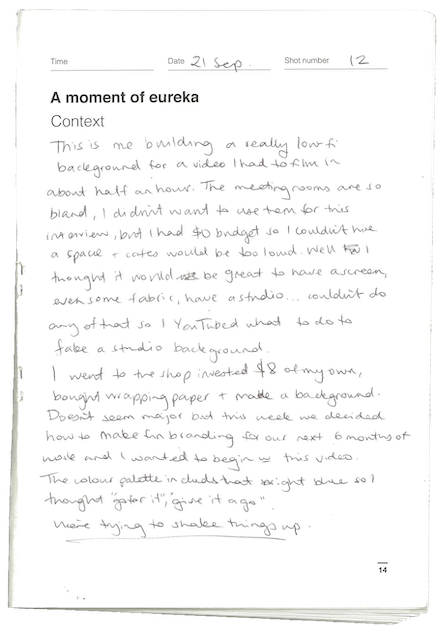 Time Date 21 Sep. Shot number 12
A moment of eureka
Context
This is me building a really low-fi
background for a video I had to film in
about half an hour. The meeting rooms are so
bland, I didn't want to use them for this
interview, but I had $0 budget so I couldn't hire
a space + cafes would be too loud. Well I
thought it would be great to have a screen,
even some fabric, have a studio... couldn't do
any of that so I YouTubed what to do to
fake a studio background.
I went to the shop invested $8 of my own,
bought wrapping paper + made a background.
Doesn't seem major but this week we decided
how to make fun branding for our next 6 months of
work and I wanted to begin w this video.
The colour palette includes that bright blue so I
thought "go for it", "give it a go".
We're trying to shake things up.
14